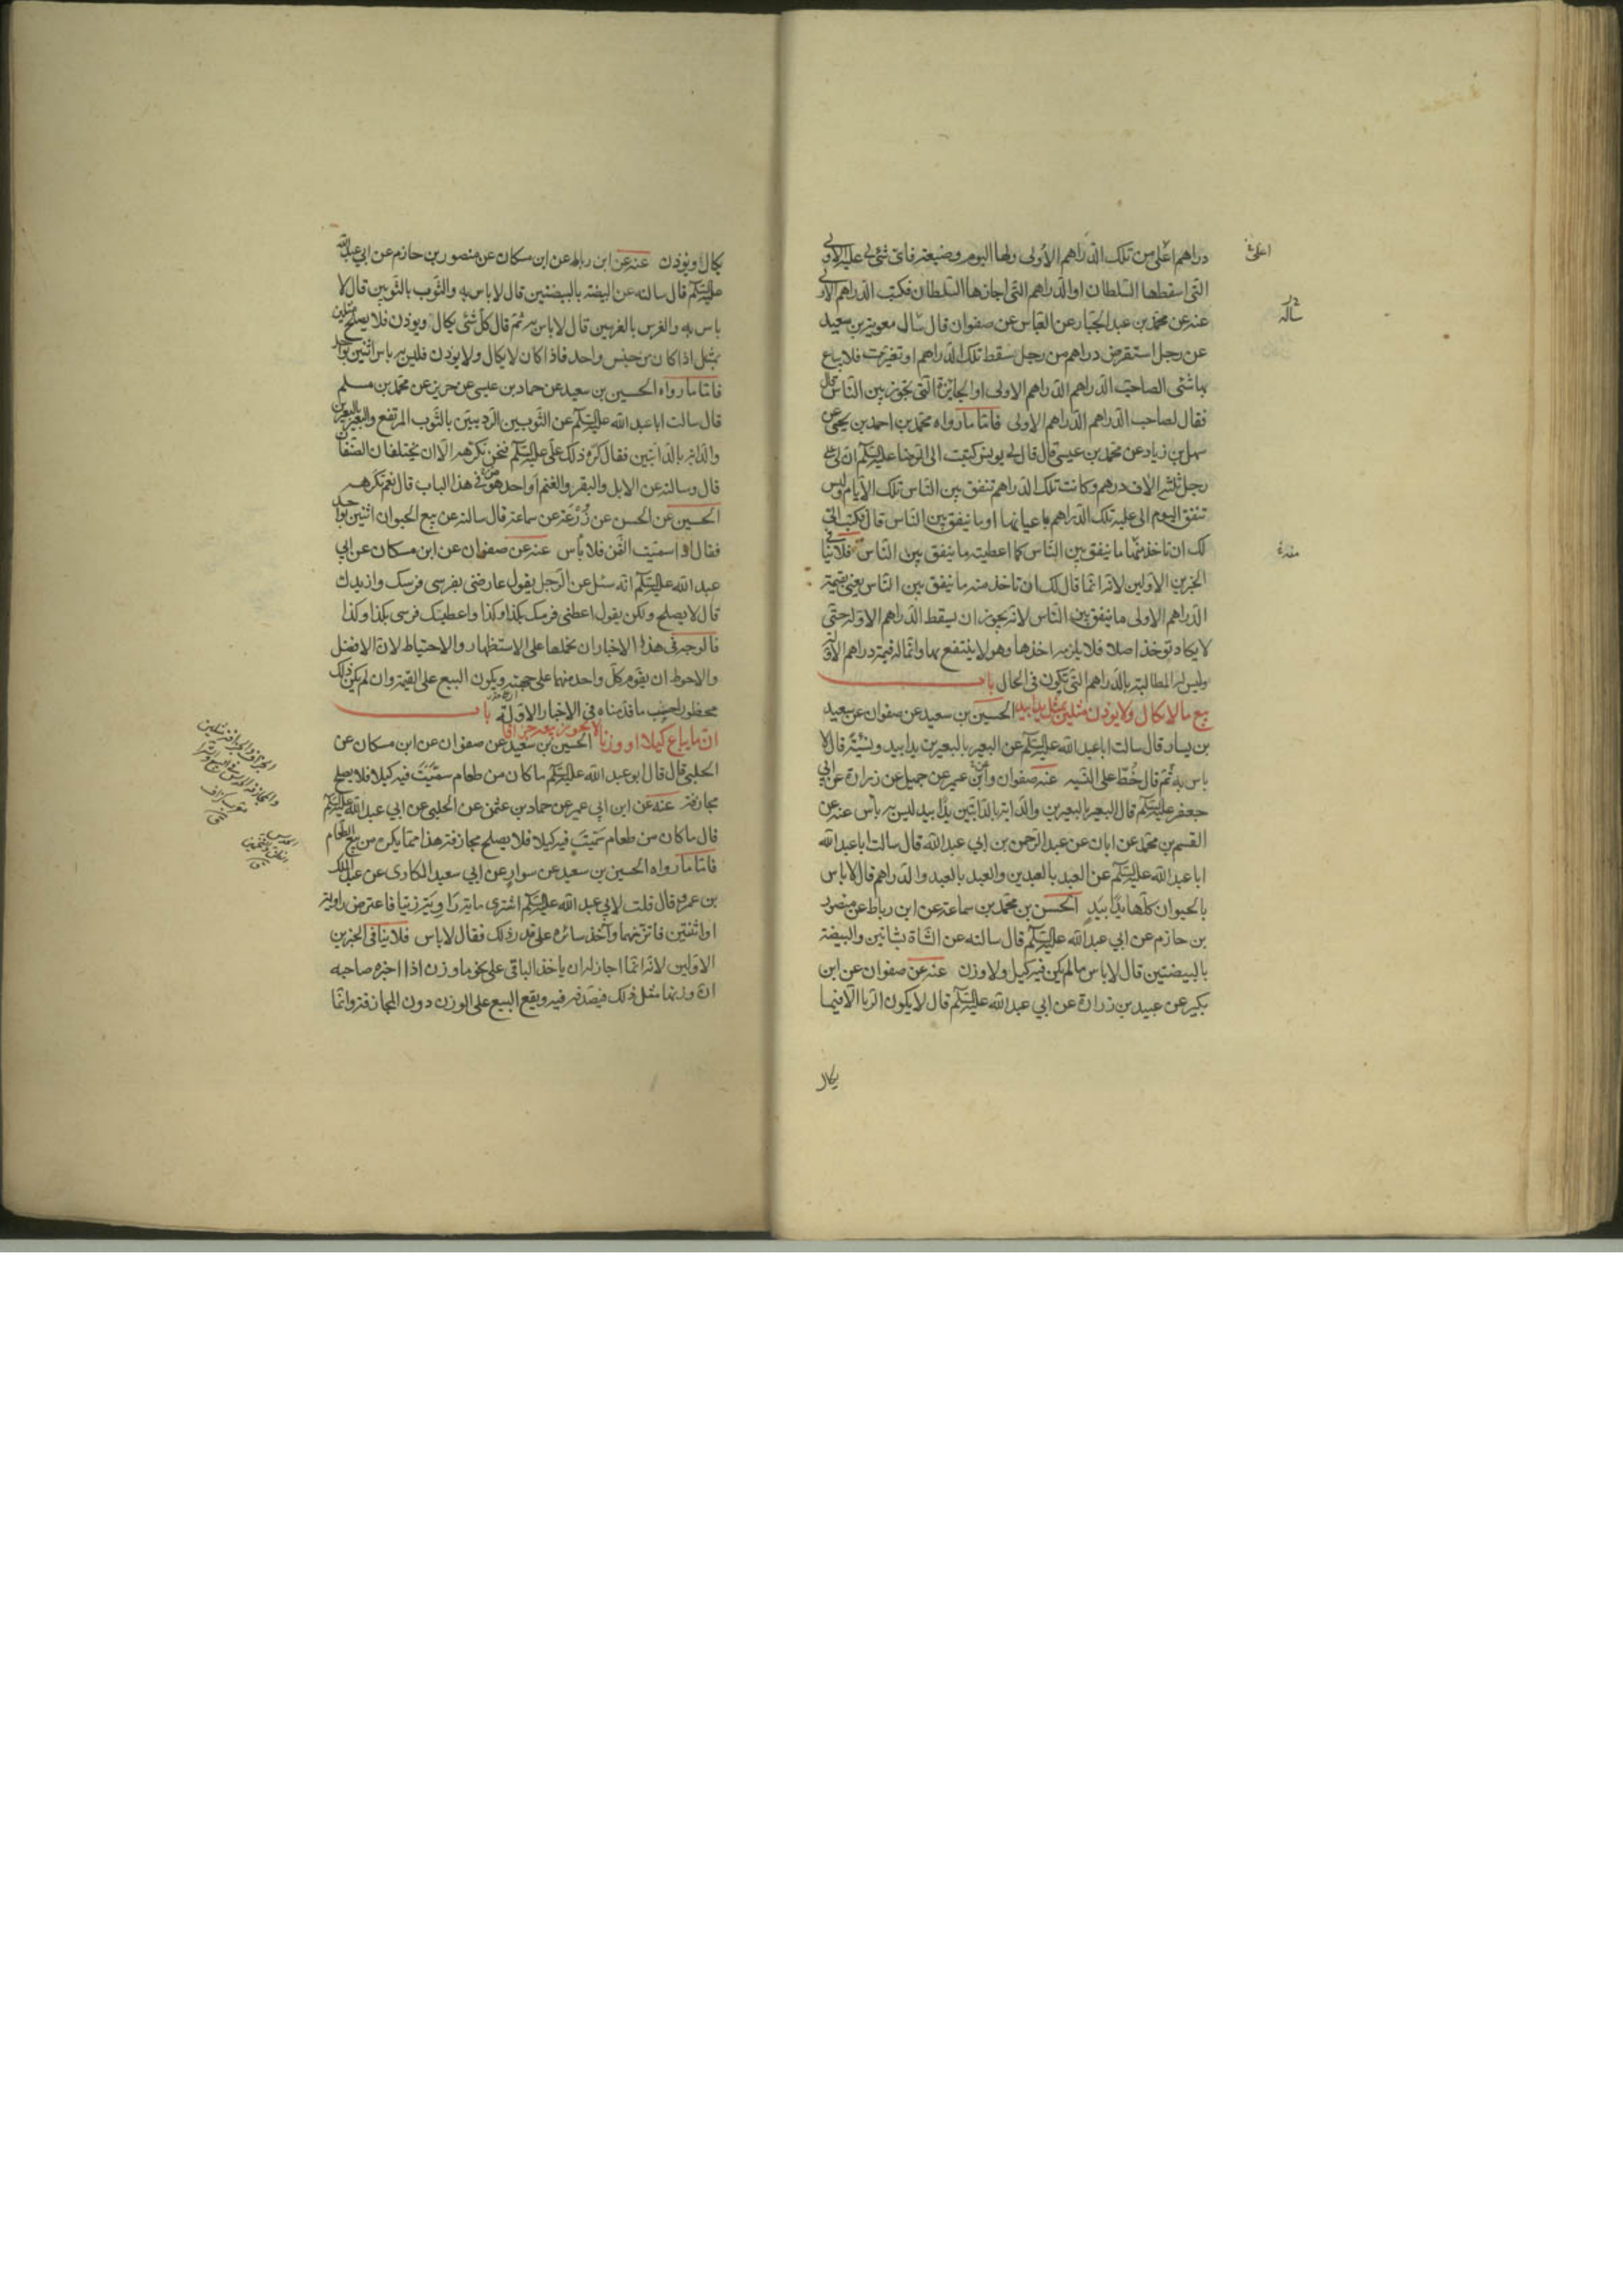 دراهم اعلى من تلك الدراهم الاولى ولها اليوم وضيعة فاي شئ لي عليه الاولى
التي اسقطها السلطان او الدراهم التي اجازها السلطان فكتب الدراهم الاولى
عنه عن محمد بن عبد الجبار عن العباس عن صفوان قال سال معوية بن سعيد
عن رجل استقرض دراهم من رجل سقط تلك الدراهم او تغيرت فلا يباع
بها شئ الصاحب الدراهم الدراهم الاولى او الجايزة التي تجوز بين الناس قال
فقال لصاحب الدراهم الدراهم الاولى فاما ما رواه محمد بن احمد بن يحيى عن
سهل بن زياد عن محمد بن عيسى قال قال لي يونس كتبت الى الرضا عليه السلم ان لي على
رجل ثلثة الاف درهم وكانت تلك الدراهم تنفق بين الناس تلك الايام وليس
تنفق اليوم الى عليه تلك الدراهم باعيانها او ما ينفق بين الناس قال فكتب الي
لك ان تاخذ منها ما ينفق بين الناس كما اعطيته ما ينفق بين الناس فلا ينافي
الخبرين الاولين لانه انما قال لك ان تاخذ منه ما ينفق بين الناس يعني بقيمة
الدراهم الاولى ما ينفق بين الناس لانه يجوز ان يسقط الدراهم الاولة حتى
لا يكاد توخذ اصلا فلا يلزمه اخذها وهو لا ينتفع بها وانما له قيمة دراهم الاولة
وليس له المطالبة بالدراهم التي تكون في الحال باب
بيع ما لا يكال ولا يوزن مثلين بمثل يدا بيد الحسين بن سعيد عن صفوان عن سعيد
بن يسار قال سالت ابا عبد الله عليه السلم عن البعير بالبعيرين يدا بيد ونسية قال لا
باس به ثم قال خط على النسيه عنه صفوان وابن ابي عمير عن جميل عن زرارة عن ابي
جعفر عليه السلم قال البعير بالبعيرين والدابة بالدابتين يدا بيد ليس به باس عنه عن
القسم بن محمد عن ابان عن عبد الرحمن بن ابي عبد الله قال سالت ابا عبد الله
ابا عبد الله عليه السلم عن العبد بالعبدين والعبد بالعبد والدراهم قال لا باس
بالحيوان كلها يدا بيد الحسن بن محمد بن سماعة عن ابن رباط عن منصور
بن حازم عن ابي عبد الله عليه السلم قال سالته عن الشاة بشاتين والبيضة
بالبيضتين قال لا باس ما لم يكن فيه كيل ولا وزن عنه عن صفوان عن ابن
بكير عن عبيد بن زرارة عن ابي عبد الله عليه السلم قال لا يكون الربا الا فيما
يكال
يكال او يوزن عنه عن ابن رباط عن ابن مسكان عن منصور بن حازم عن ابي عبد الله
عليه السلم قال سالته عن البيضة بالبيضتين قال لا باس به والثوب بالثوبين قال لا
باس به والفرس بالفرسين قال لا باس به ثم قال كل شئ يكال ويوزن فلا يصلح مثلين
بمثل اذا كان من جنس واحد فاذا كان لا يكال ولا يوزن فليس به باس اثنين بواحد
فاما ما رواه الحسين بن سعيد عن حماد بن عيسى عن حريز عن محمد بن مسلم
قال سالت ابا عبد الله عليه السلم عن الثوبين الرديين بالثوب المرتفع والبعير بالبعيرين
والدابة بالدابتين فقال كره ذلك علي عليه السلم فنحن نكرهه الا ان يختلفان الصنفان
قال وسالته عن الابل والبقر والغنم او احدهن في هذا الباب قال نعم نكرهه
الحسين عن الحسن عن زرعة عن سماعة قال سالته عن بيع الحيوان اثنين بواحد
فقال اذا سميت الثمن فلا باس عنه عن صفوان عن ابن مسكان عن ابي
عبد الله عليه السلم انه سئل عن الرجل يقول عارضني بفرسي فرسك وازيدك
قال لا يصلح ولكن يقول اعطني فرسك بكذا وكذا واعطيتك فرسي بكذا وكذا
فالوجه في هذا الاخبار ان نحملها على الاستظهار والاحتياط لان الافضل
والاحوط ان يقوم كل واحد منهما على جهته ويكون البيع على القيمة وان لم يكن ذلك
محظورا حسب ما قدمناه في الاخبار الاولة باب
ان ما يباع كيلا او وزنا لا يجوز بيعه جزافا الحسين بن سعيد عن صفوان عن ابن مسكان عن
الحلبي قال قال ابو عبد الله عليه السلم ما كان من طعام سميت فيه كيلا فلا يصلح
مجازفة عنه عن ابن ابي عمير عن حماد بن عثمن عن الحلبي عن ابي عبد الله عليه السلم
قال ما كان من طعام سميت فيه كيلا فلا يصلح مجازفة هذا مما يكره من بيع الطعام
فاما ما رواه الحسين بن سعيد عن سوار عن ابي سعيد المكاري عن عبد الملك
بن عمرو قال قلت لابي عبد الله عليه السلم اشتري ماية راوية زيتا فاعترض راوية
او اثنتين فاتزنهما وآخذ سائره على قدر ذلك فقال لا باس فلا ينافي الخبرين
الاولين لانه انما اجاز له ان ياخذ الباقي على نحو ما وزن اذا اخبره صاحبه
ان وزنها مثل ذلك فيصدقه فيه ويقع البيع على الوزن دون المجازفة وانما